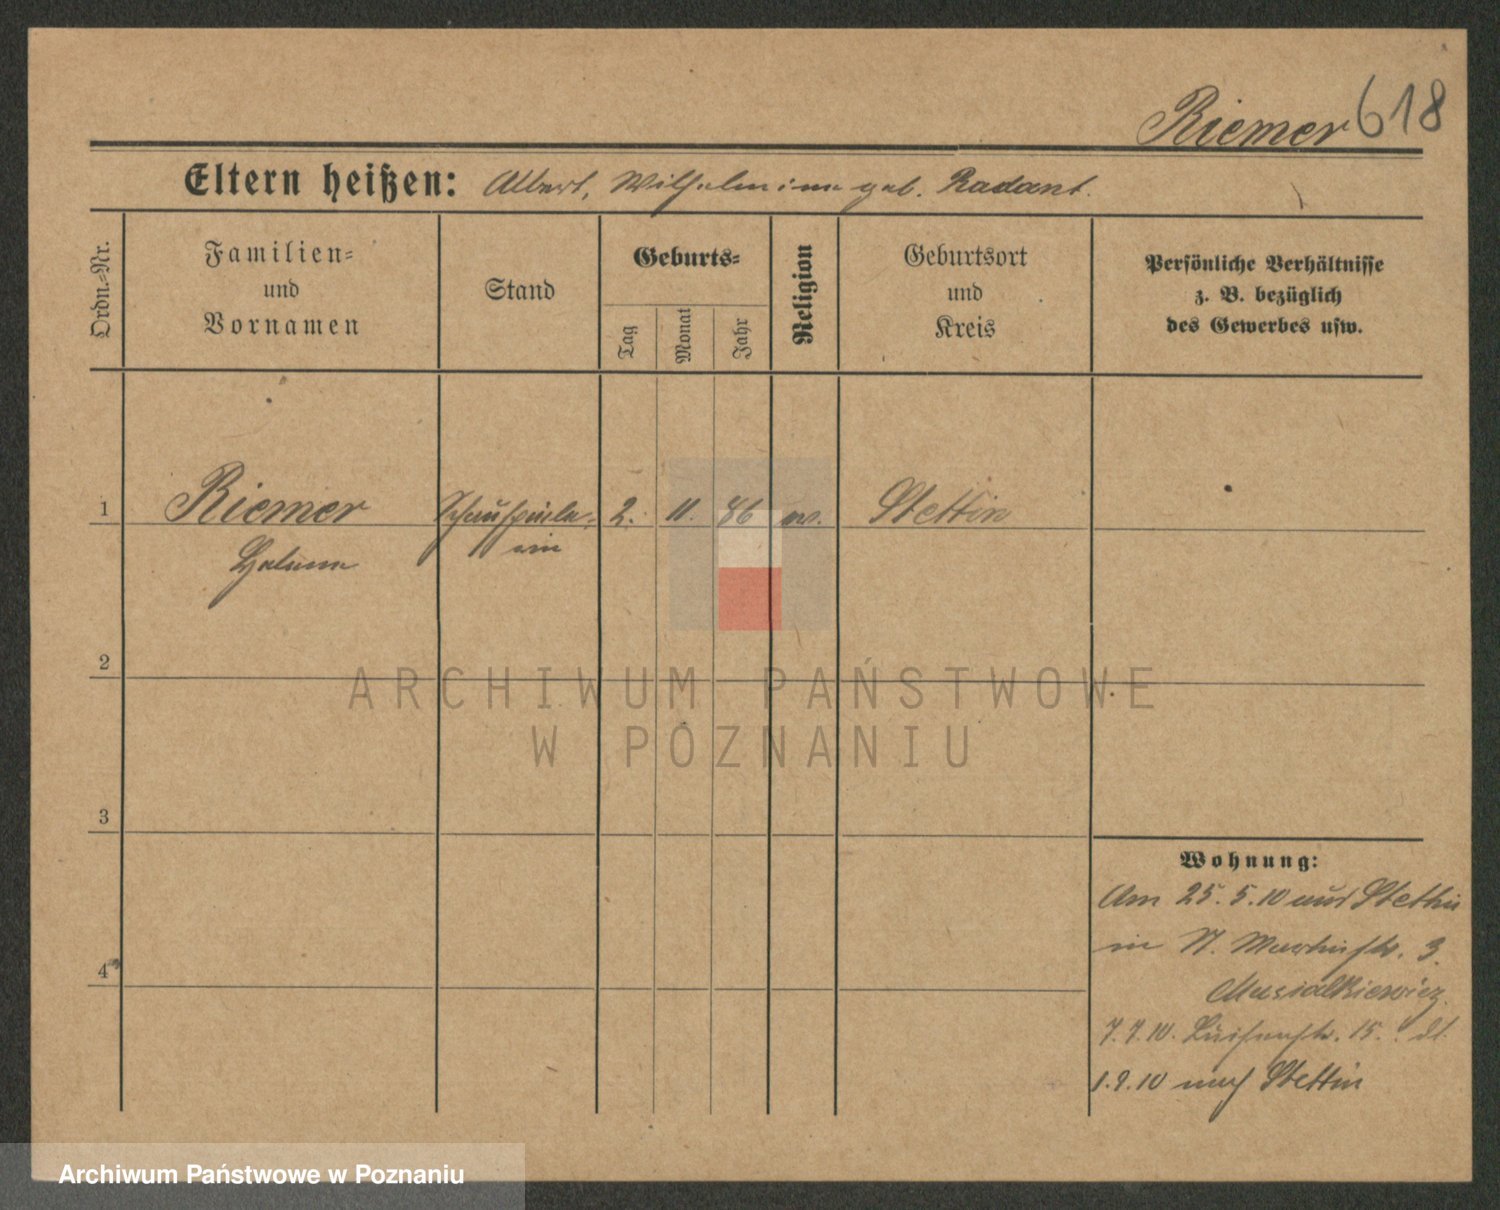 Riemer 618
Eltern heißen: Albert, Wilhelmine geb. Radant.
Ordn.-Nr.
Familien-
und
Vornamen
Stand
Geburts-
Tag
Monat
Jahr
Religion
Geburtsort
und
Kreis
Persönliche Verhältnisse
z. B. bezüglich
des Gewerbes usw.
1 Riemer Schauspiele- 2. 11. 86 ev. Stettin
Helene rin
2
ARCHIWUM PAŃSTWOWE
W POZNANIU
3
4
Wohnung:
Am 25.5.10 aus Stettin
in St. Martinstr. 3.
Musialkiewicz.
7.7.10. Luisenstr. 15.
1.9.10 nach Stettin
Archiwum Państwowe w Poznaniu